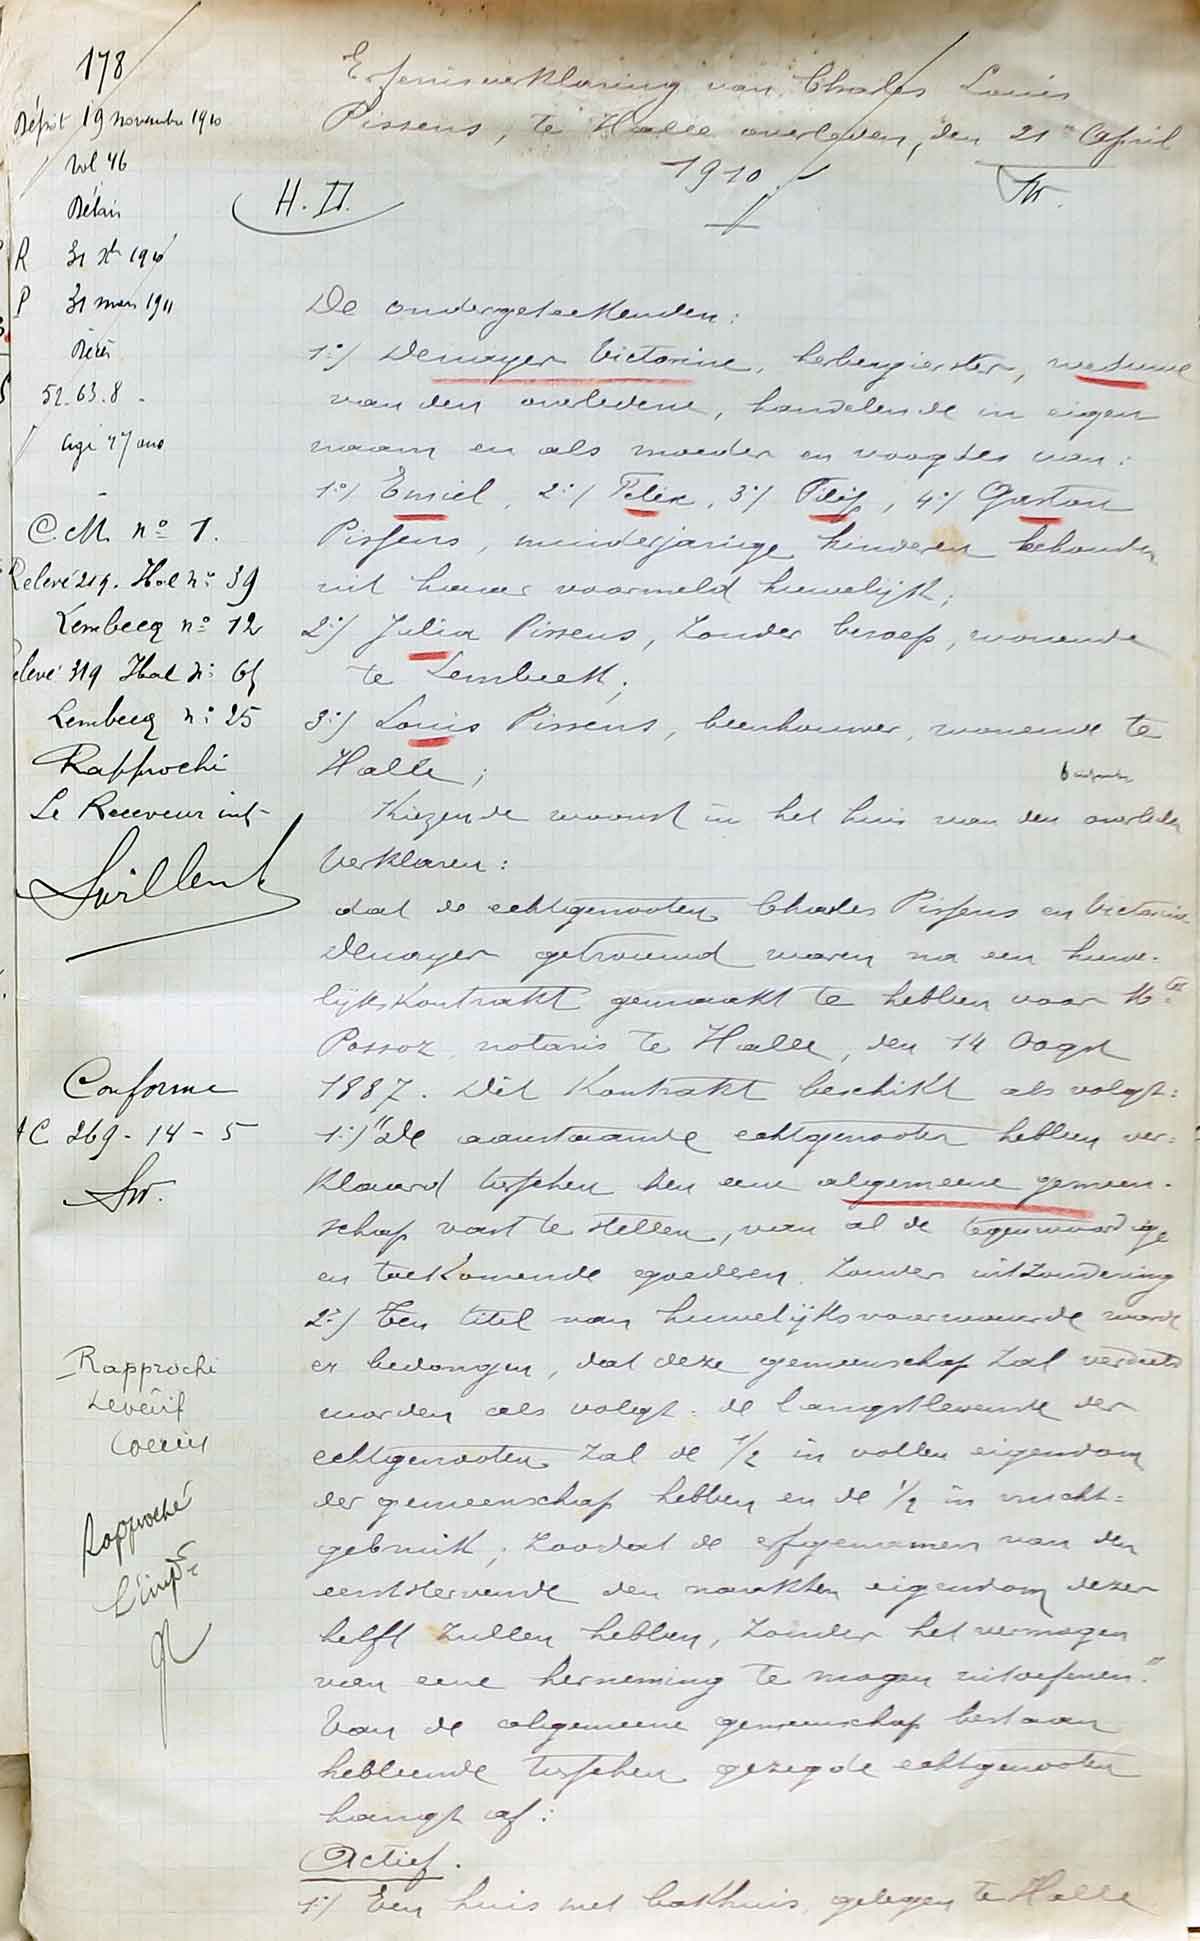 178
Dépôt 19 novembre 1910
Vol 46
Délais
R 31 Xbre 1910
P 31 mars 1911
Décès
52.63.8.
agé 47 ans
C.M. nº 1.
Relevé 219. Hal nº 39
Lembecq nº 12
Relevé 319 Hal nº
Lembecq nº 25
Rapproché
Le Receveur int
Conforme
AC 269-14-5
Rapproché
Rapproché
H. D.
Erfenisverklaring van Charles Louis
Pissens, te Halle overleden, den 21en April
1910.
De ondergeteekenden:
1º/ Demayer Victorine, herbergierster, weduwe
van den overledene, handelende in eigen
naam en als moeder en voogdes van:
1º/ Emiel, 2º/ Felix, 3º/ Filip, 4º/ Gaston
Pissens, minderjarige kinderen behouden
uit haar voormeld huwelijk;
2º/ Julia Pissens, zonder beroep, wonende
te Lembeek;
3º/ Louis Pissens, beenhouwer, wonende te
Halle;
Kiezende woonst in het huis van den overleden
Verklaren:
dat de echtgenooten Charles Pissens en Victorine
Demayer getrouwd waren na een huwe-
lijkskontrakt gemaakt te hebben voor Mter
Possoz notaris te Halle, den 14 Oogst
1887. Dit Kontrakt beschikt als volgt:
1º/ "De aanstaande echtgenooten hebben ver-
klaard tusschen hen eene algemeene gemeen-
schap vast te stellen, van al de tegenwoordige
en toekomende goederen zonder uitzondering
2º/ Ten titel van huwelijksvoorwaarde wordt
er bedongen, dat deze gemeenschap zal verdeeld
worden als volgt: de langstlevende der
echtgenooten zal de 1/2 in vollen eigendom
der gemeenschap hebben en de 1/2 in vrucht-
gebruik; zoodat de erfgenamen van den
eerststervende den naakten eigendom dezer
helft zullen hebben, zonder het vermogen
van eene herneming te mogen uitoefenen."
Van de algemeene gemeenschap bestaan
hebbende tusschen gezegde echtgenooten
hangt af:
Actief.
1º/ Een huis met bakhuis, gelegen te Halle